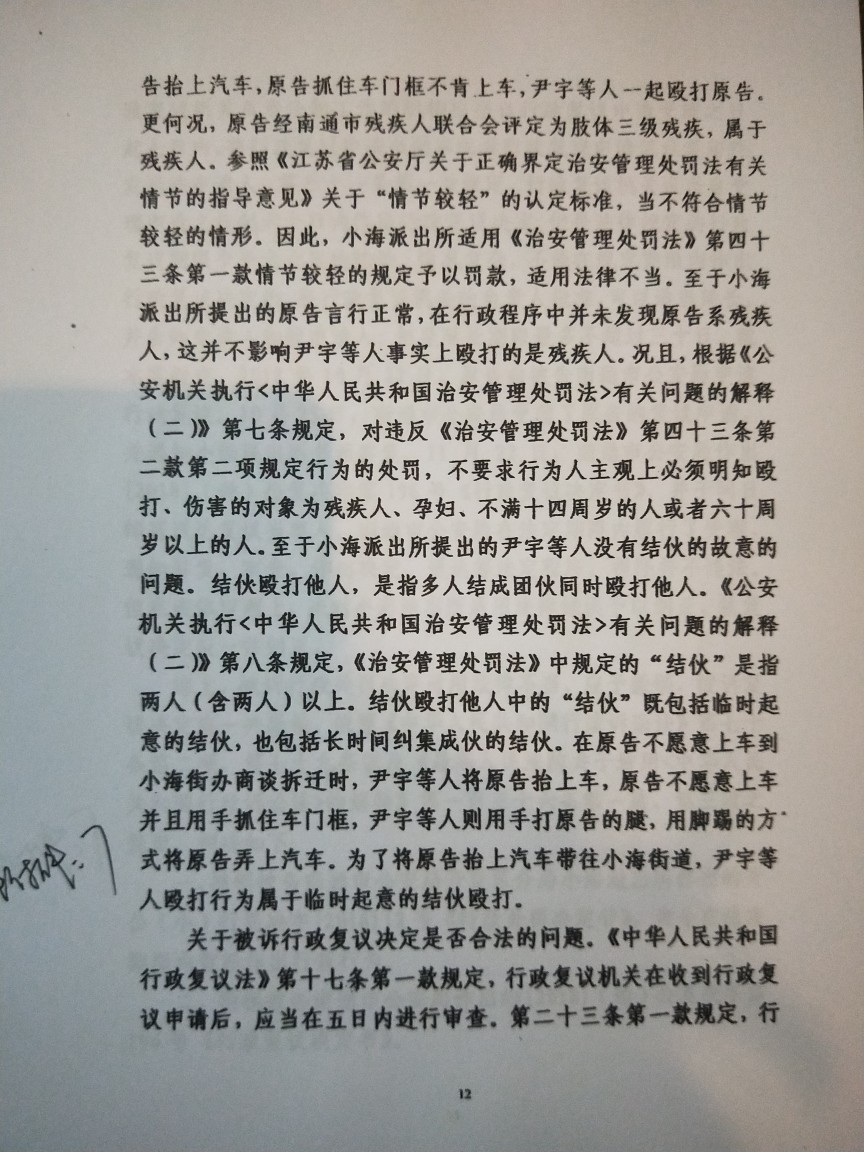 告抬上汽车，原告抓住车门框不肯上车，尹宇等人一起殴打原告。
更何况，原告经南通市残疾人联合会评定为肢体三级残疾，属于
残疾人。参照《江苏省公安厅关于正确界定治安管理处罚法有关
情节的指导意见》关于“情节较轻”的认定标准，当不符合情节
较轻的情形。因此，小海派出所适用《治安管理处罚法》第四十
三条第一款情节较轻的规定予以罚款，适用法律不当。至于小海
派出所提出的原告言行正常，在行政程序中并未发现原告系残疾
人，这并不影响尹宇等人事实上殴打的是残疾人。况且，根据《公
安机关执行<中华人民共和国治安管理处罚法>有关问题的解释
（二）》第七条规定，对违反《治安管理处罚法》第四十三条第
二款第二项规定行为的处罚，不要求行为人主观上必须明知殴
打、伤害的对象为残疾人、孕妇、不满十四周岁的人或者六十周
岁以上的人。至于小海派出所提出的尹宇等人没有结伙的故意的
问题。结伙殴打他人，是指多人结成团伙同时殴打他人。《公安
机关执行<中华人民共和国治安管理处罚法>有关问题的解释
（二）》第八条规定，《治安管理处罚法》中规定的“结伙”是指
两人（含两人）以上。结伙殴打他人中的“结伙”既包括临时起
意的结伙，也包括长时间纠集成伙的结伙。在原告不愿意上车到
小海街办商谈拆迁时，尹宇等人将原告抬上车，原告不愿意上车
并且用手抓住车门框，尹宇等人则用手打原告的腿，用脚踢的方
式将原告弄上汽车。为了将原告抬上汽车带往小海街道，尹宇等
人殴打行为属于临时起意的结伙殴打。
关于被诉行政复议决定是否合法的问题。《中华人民共和国
行政复议法》第十七条第一款规定，行政复议机关在收到行政复
议申请后，应当在五日内进行审查。第二十三条第一款规定，行
12